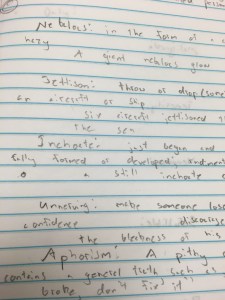 Nebulous: in the form of a
hazy
A giant nebulous glow
Jettison: throw or drop (some
an aircraft or ship
six aircraft jettisoned
the sea
Inchoate: just began and
fully formed or developed; rudiment
a still inchoate
Unnerving: make someone lose
confidence
the bleakness of his
Aphorism: A pithy
contains a general truth such as
broke, don't fix it"